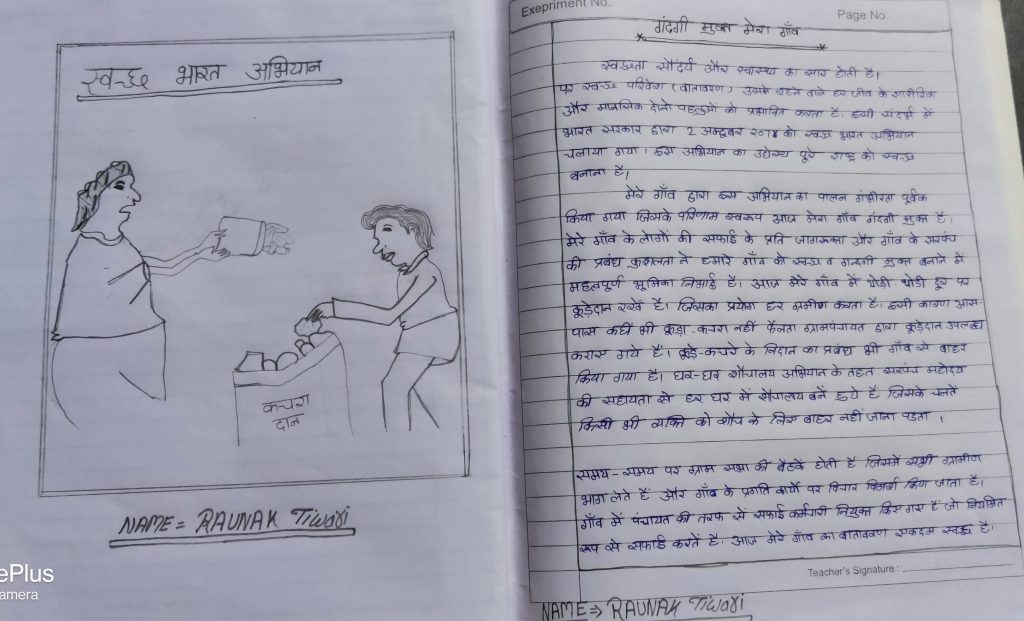 स्वच्छ भारत अभियान
कचरा
दान
NAME = RAUNAK Tiwari
ePlus
amera
Exepriment No.
Page No.
गंदगी मुक्त मेरा गाँव
स्वच्छता सौंदर्य और स्वास्थ्य का सार होती है।
पर स्वच्छ परिवेश (वातावरण) उसके रहने वाले हर जीव के शारीरिक
और मानसिक दोनो पहलुओ को प्रभावित करता है। इसी संदर्भ में
भारत सरकार द्वारा 2 अक्टूबर 2014 को स्वच्छ भारत अभियान
चलाया गया। इस अभियान का उद्देश्य पूरे राष्ट्र को स्वच्छ
बनाना है।
मेरे गाँव द्वारा इस अभियान का पालन गंभीरता पूर्वक
किया गया जिसके परिणाम स्वरूप आज मेरा गाँव गंदगी मुक्त है।
मेरे गाँव के लोगों की सफाई के प्रति जागरूकता और गाँव के सरपंच
की प्रबंध कुशलता ने हमारे गाँव को स्वच्छ व गन्दगी मुक्त बनाने में
महत्वपूर्ण भूमिका निभाई है। आज मेरे गाँव में थोड़ी-थोड़ी दूर पर
कूड़ेदान रखें है। जिसका प्रयोग हर ग्रामीण करता है। इसी कारण आस-
पास कहीं भी कूड़ा-कचरा नहीं फैलता ग्रामपंचायत द्वारा कूड़ेदान उपलब्ध
कराए गये हैं। कूड़े-कचरे के निदान का प्रबंध भी गाँव से बाहर
किया गया है। घर-घर शौचालय अभियान के तहत सरपंच महोदय
की सहायता से हर घर में शौचालय बनें हुये है जिसके चलते
किसी भी व्यक्ति को शौच के लिए बाहर नहीं जाना पडता।
समय-समय पर ग्राम सभा की बैठकें होती है जिसमें सभी ग्रामीण
भाग लेते हैं और गाँव के प्रगति कार्यो पर विचार विमर्श किया जाता है।
गाँव में पंचायत की तरफ से सफाई कर्मचारी नियुक्त किए गए हैं जो नियमित
रूप से सफाई करतें है। आज मेरे गाँव का वातावरण एकदम स्वच्छ है।
Teacher's Signature :
NAME ⇒ RAUNAK Tiwari